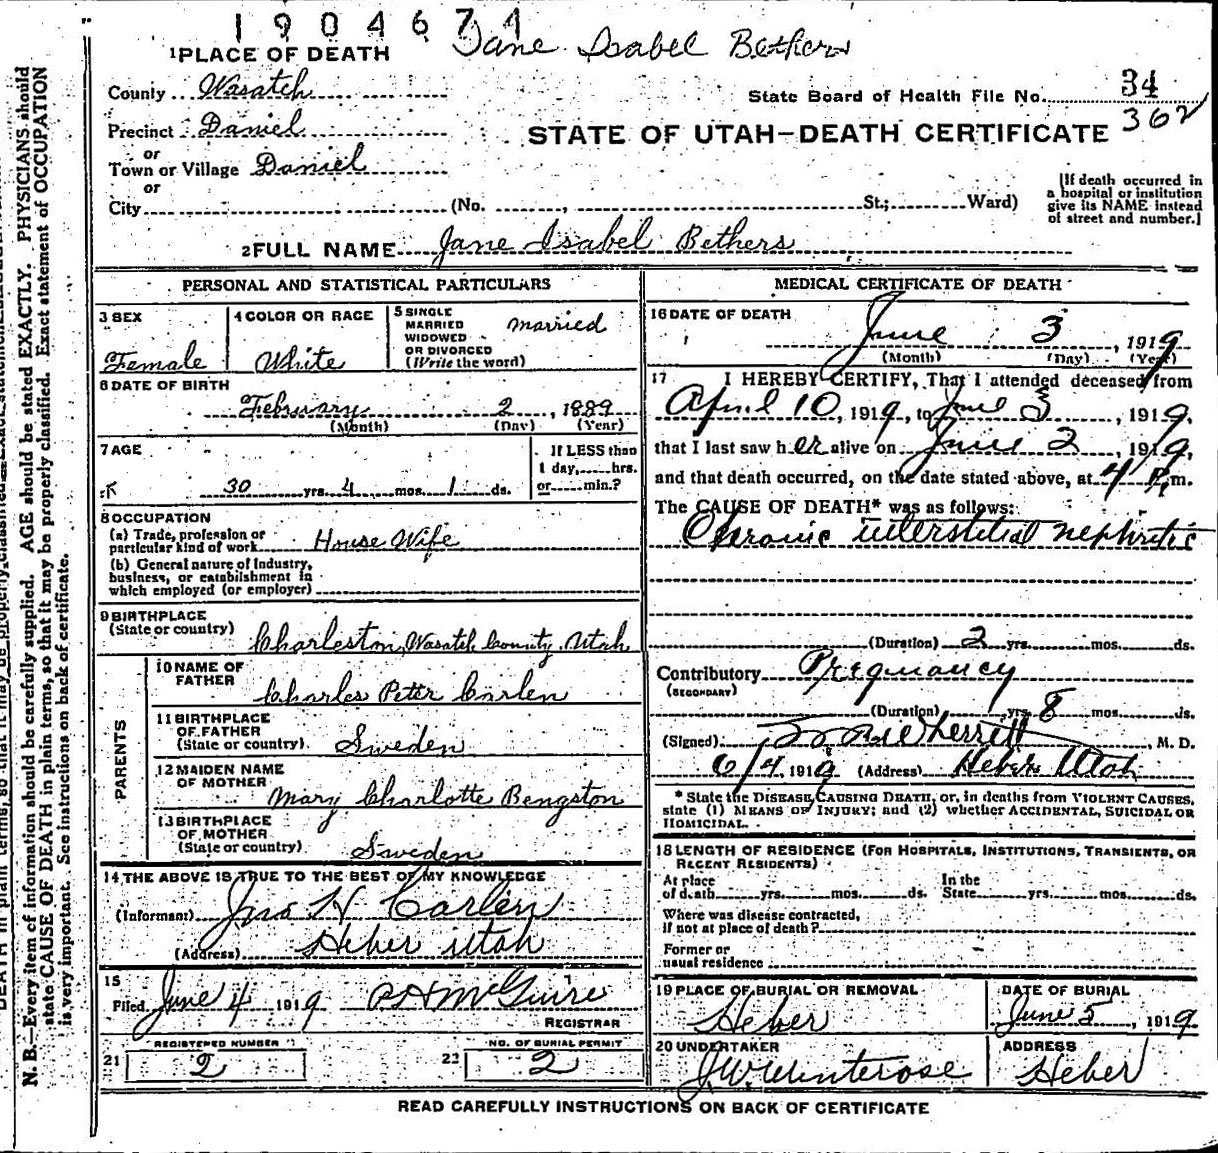 1904671
Jane Isabel Bethers
1 PLACE OF DEATH
County Wasatch
State Board of Health File No. 34
362
Precinct Daniel
STATE OF UTAH—DEATH CERTIFICATE
or
Town or Village Daniel
or
City (No. , St.; Ward)
[If death occurred in a hospital or institution give its NAME instead of street and number.]
2 FULL NAME Jane Isabel Bethers
PERSONAL AND STATISTICAL PARTICULARS
3 SEX
Female
4 COLOR OR RACE
White
5 SINGLE
MARRIED
WIDOWED
OR DIVORCED
(Write the word)
married
6 DATE OF BIRTH
February 2, 1889
(Month) (Day) (Year)
7 AGE
30 yrs. 4 mos. 1 ds.
If LESS than
1 day, hrs.
or min.?
8 OCCUPATION
(a) Trade, profession or
particular kind of work House Wife
(b) General nature of Industry,
business, or establishment in
which employed (or employer)
9 BIRTHPLACE
(State or country) Charleston, Wasatch County, Utah
PARENTS
10 NAME OF
FATHER
Charles Peter Carlen
11 BIRTHPLACE
OF FATHER
(State or country) Sweden
12 MAIDEN NAME
OF MOTHER
Mary Charlotte Bengston
13 BIRTHPLACE
OF MOTHER
(State or country) Sweden
14 THE ABOVE IS TRUE TO THE BEST OF MY KNOWLEDGE
(Informant) Jno H Carlen
(Address) Heber Utah
15
Filed June 4 1919 P H McGuire
REGISTRAR
REGISTERED NUMBER
21 2
NO. OF BURIAL PERMIT
22 2
MEDICAL CERTIFICATE OF DEATH
16 DATE OF DEATH
June 3, 1919
(Month) (Day) (Year)
17 I HEREBY CERTIFY, That I attended deceased from
April 10, 1919, to June 3, 1919,
that I last saw her alive on June 2, 1919,
and that death occurred, on the date stated above, at 4 P.m.
The CAUSE OF DEATH* was as follows:
Chronic interstitial nephritis
(Duration) 2 yrs. mos. ds.
Contributory Pregnancy
(SECONDARY)
(Duration) yrs. 8 mos. ds.
(Signed) , M. D.
6/4 1919 (Address) Heber Utah
* State the DISEASE CAUSING DEATH, or, in deaths from VIOLENT CAUSES,
state (1) MEANS OF INJURY; and (2) whether ACCIDENTAL, SUICIDAL OR
HOMICIDAL.
18 LENGTH OF RESIDENCE (FOR HOSPITALS, INSTITUTIONS, TRANSIENTS, OR
RECENT RESIDENTS)
At place
of death yrs. mos. ds.
In the
State yrs. mos. ds.
Where was disease contracted,
if not at place of death?
Former or
usual residence
19 PLACE OF BURIAL OR REMOVAL
Heber
DATE OF BURIAL
June 5, 1919
20 UNDERTAKER
J W Winterose
ADDRESS
Heber
READ CAREFULLY INSTRUCTIONS ON BACK OF CERTIFICATE
N. B.—Every item of information should be carefully supplied. AGE should be stated EXACTLY. PHYSICIANS should
state CAUSE OF DEATH in plain terms, so that it may be properly classified. Exact statement of OCCUPATION
is very important. See instructions on back of certificate.